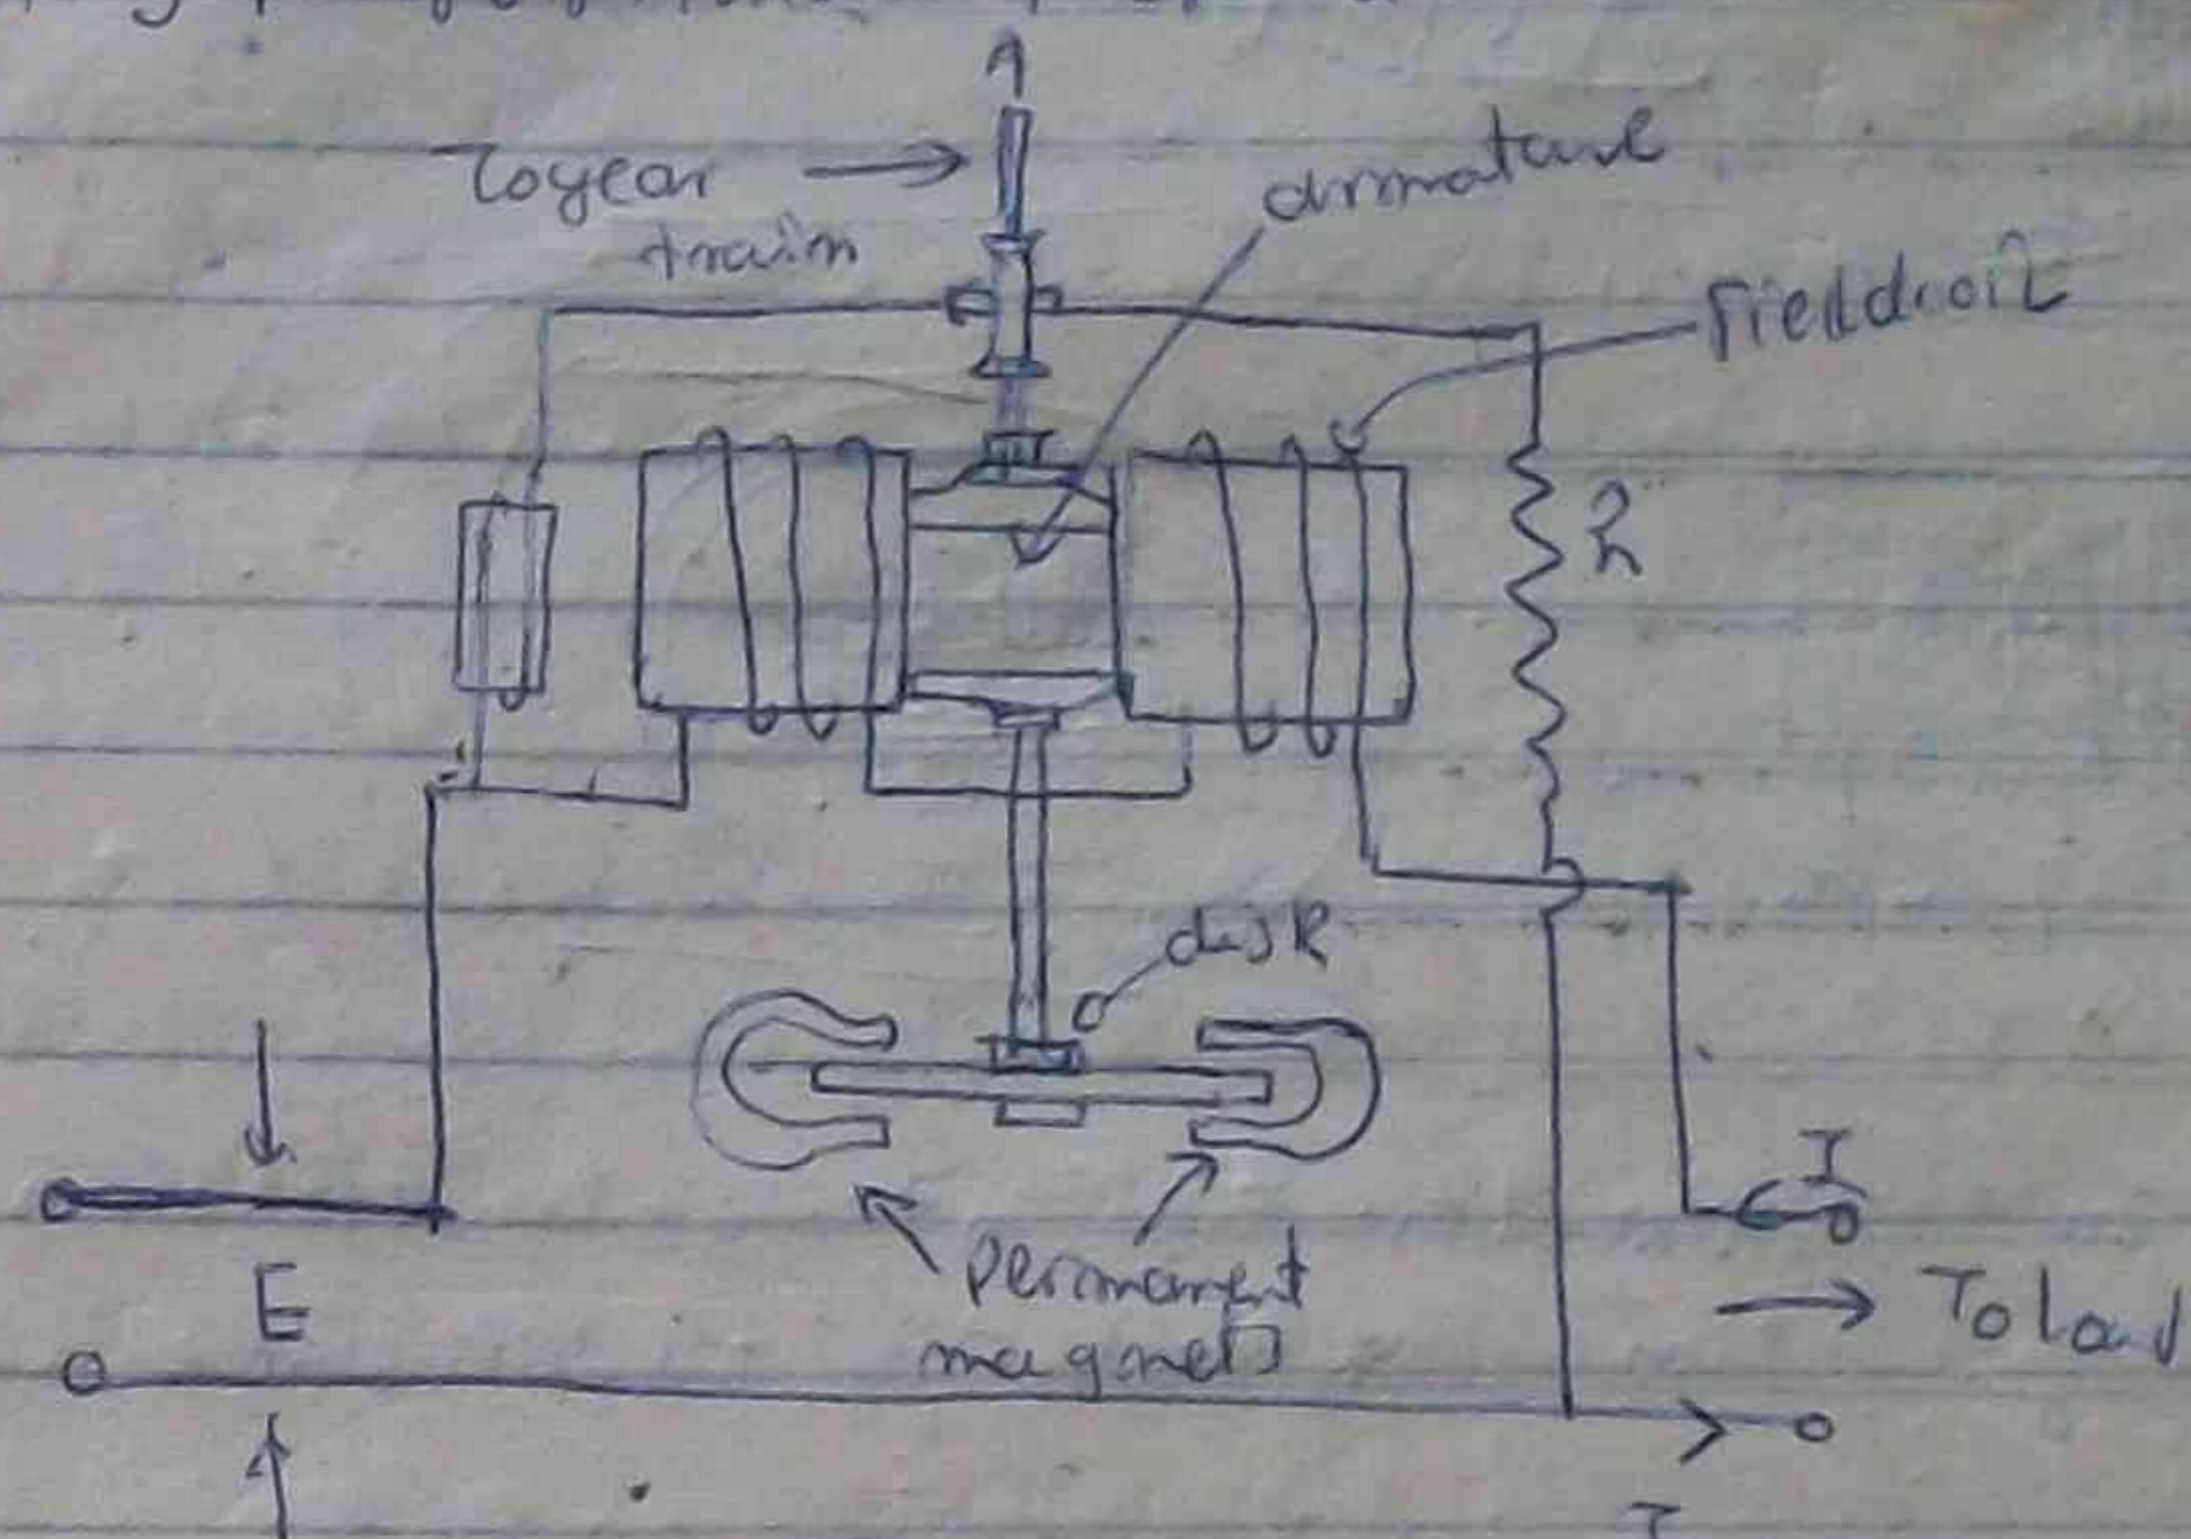 To gear
train
armature
field coil
R
disk
permanent
magnets
E
I
To load
I